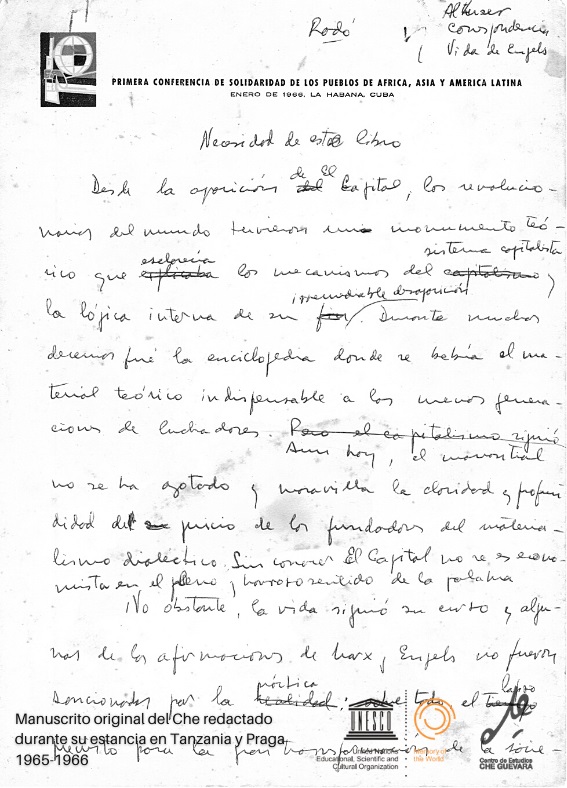 Rodó
Althusser
Correspondencia
Vida de Engels
PRIMERA CONFERENCIA DE SOLIDARIDAD DE LOS PUEBLOS DE AFRICA, ASIA Y AMERICA LATINA
ENERO DE 1966, LA HABANA, CUBA
Necesidad de este libro
Desde la aparición del de El Capital, los revolucio-
narios del mundo tuvieron un monumento teó-
rico que explicaba esclarecía los mecanismos del capitalismo sistema capitalista y
la lógica interna de su fin irremediable desaparición. Durante muchos
decenios fué la enciclopedia donde se bebía el ma-
terial teórico indispensable a las nuevas genera-
ciones de luchadores. Pero el capitalismo siguió
Aun hoy, el manantial
no se ha agotado y maravilla la claridad y profun-
didad del su juicio de los fundadores del materia-
lismo dialéctico. Sin conocer El Capital no se es econo-
mista en el pleno y honroso sentido de la palabra
No obstante, la vida siguió su curso y algu-
nas de las afirmaciones de Marx y Engels no fueron
sancionadas por la realidad práctica; sobre todo el tiempo lapso
previsto para la gran transformación de la socie-
Manuscrito original del Che redactado
durante su estancia en Tanzania y Praga
1965-1966
UNESCO
United Nations
Educational, Scientific and
Cultural Organization
Memory of
the World
Centro de Estudios
CHE GUEVARA